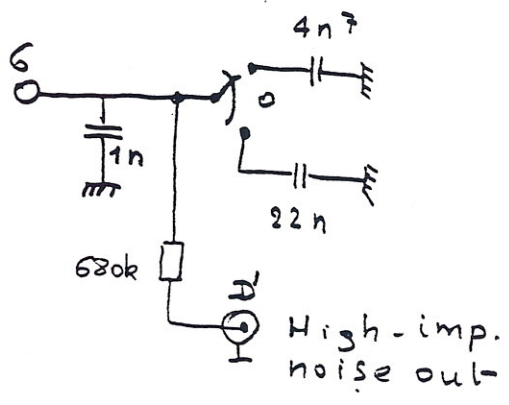 4n7
6
0
1n
22n
680k
D'
High-imp.
noise out